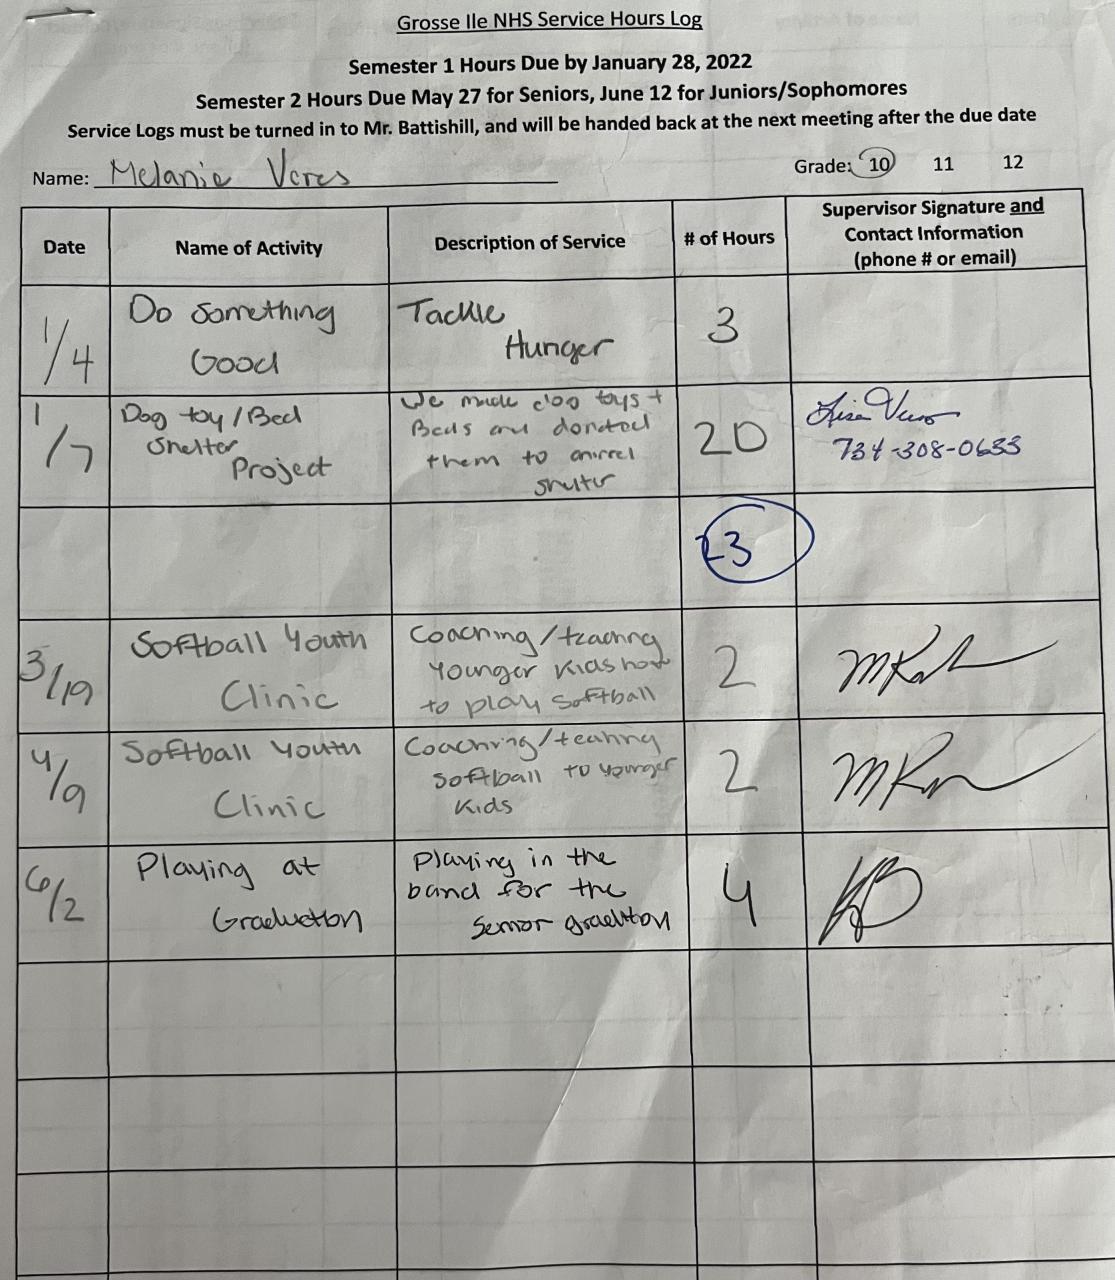 Grosse Ile NHS Service Hours Log
Semester 1 Hours Due by January 28, 2022
Semester 2 Hours Due May 27 for Seniors, June 12 for Juniors/Sophomores
Service Logs must be turned in to Mr. Battishill, and will be handed back at the next meeting after the due date
Name: Melanie Veres
Grade: 10 11 12
Date
Name of Activity
Description of Service
# of Hours
Supervisor Signature and
Contact Information
(phone # or email)
1/4
Do Something
Good
Tackle
Hunger
3
1/7
Dog toy/Bed
Shelter
Project
We made dog toys +
Beds and donated
them to animal
shelter
20
Lisa Veres
734-308-0633
23
3/19
Softball Youth
Clinic
Coaching/teaching
younger kids how
to play softball
2
4/9
Softball Youth
Clinic
Coaching/teahing
softball to younger
kids
2
6/2
Playing at
Graduation
Playing in the
band for the
Senior graduation
4